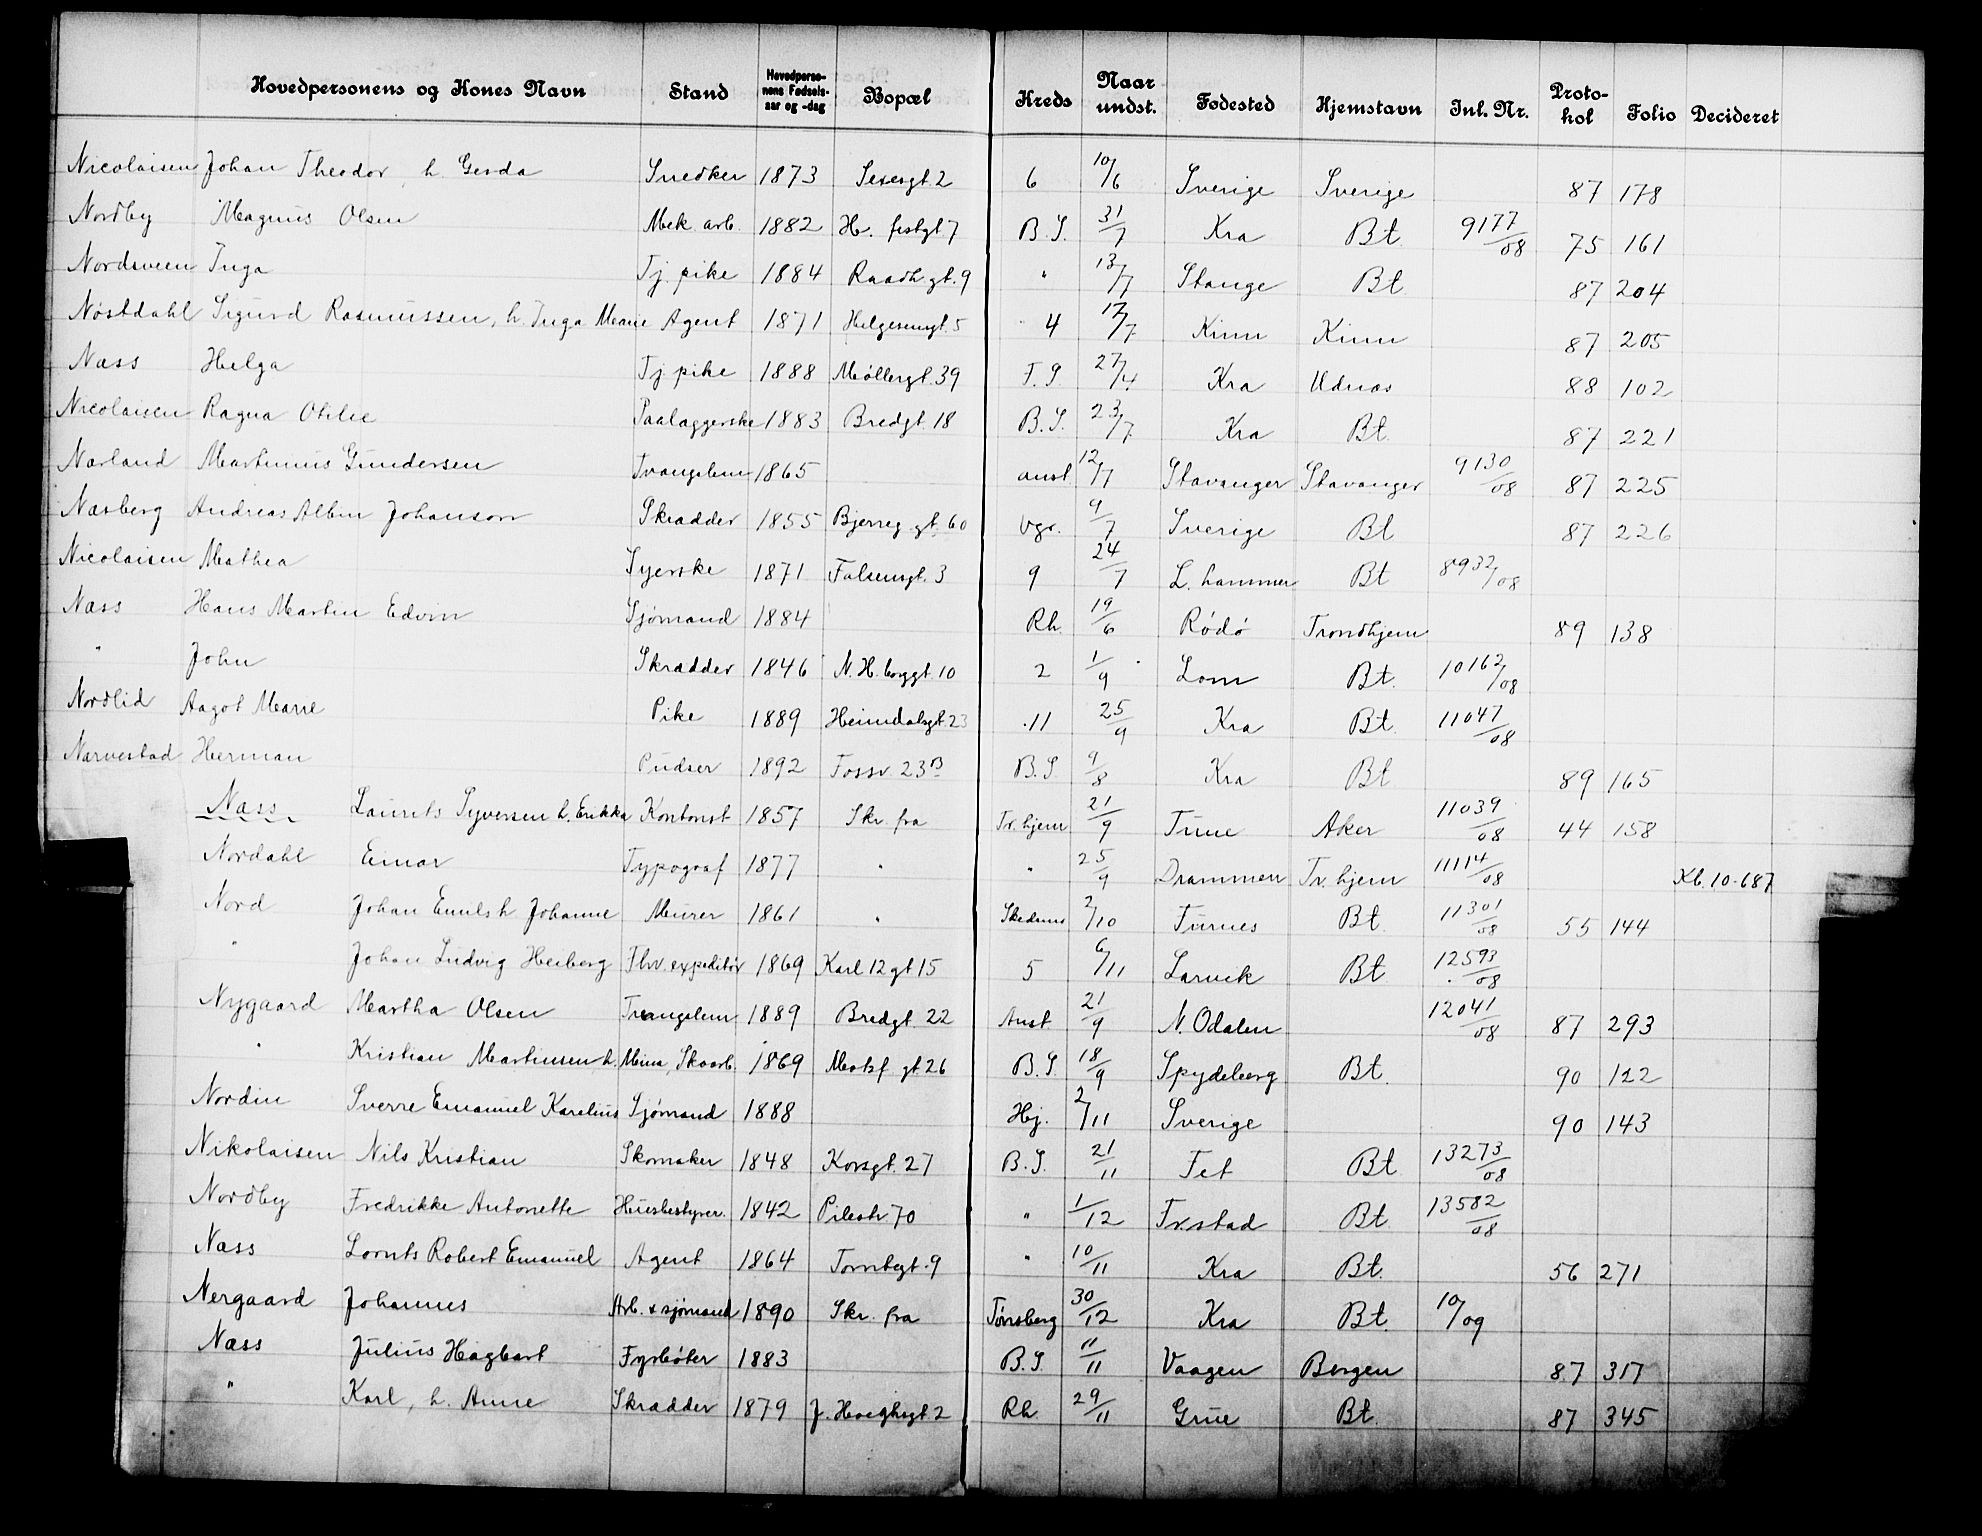 Hovedpersonens og Kones Navn Stand Hovedperso-nens Fødsels-aar og -dag Bopæl Kreds Naar undst. Fødested Hjemstavn Inl. Nr. Proto-kol Folio Decideret
Nicolaisen Johan Theodor, h. Gerda Snedker 1873 Sexesgt 2 6 10/6 Sverige Sverige 87 178
Nordby Magnus Olsen Mek. arb. 1882 H. festgt 7 B.S. 31/7 Kra Bt. 9177/08 75 161
Nordsveen Inga Tj. pike 1884 Raadh. gt. 9 " 13/7 Stange Bt. 87 204
Nøstdahl Sigurd Rasmussen, h. Inga Marie Agent 1871 Helgesensgt. 5 4 17/7 Kinn Kinn 87 205
Næss Helga Tj. pike 1888 Møllergt. 39 F.S. 27/4 Kra Udnæs 88 102
Nicolaisen Ragna Otilie Paalæggerske 1883 Bredgt. 18 B.S. 23/7 Kra Bt. 87 221
Nærland Martinius Gundersen Tvangslem 1865 anst. 12/7 Stavanger Stavanger 9130/08 87 225
Næsberg Andreas Albin Johanson Skrædder 1855 Bjerreg. gt. 60 Vgr. 9/7 Sverige Bt 87 226
Nicolaisen Mathea Syerske 1871 Falsensgt. 3 9 24/7 L. hammer Bt 8932/08
Næss Hans Martin Edvin Sjømand 1884 Rh. 19/6 Rødø Trondhjem 89 138
" John Skrædder 1846 N. H. boggt. 10 2 1/9 Lom Bt. 10162/08
Nordlid Aagot Marie Pike 1889 Heimdalsgt. 23 11 25/9 Kra Bt. 11047/08
Narvestad Herman Pudser 1892 Fossv. 23B B.S. 9/8 Kra Bt 89 165
Næss Laurits Syversen h. Erikka Kontorist 1857 Skr. fra Tr.hjem 21/9 Tune Aker 11039/08 44 158
Nordahl Einar Typograf 1877 " " 25/9 Drammen Tr.hjem 11114/08 Kb. 10-687
Nord Johan Emil h. Johanne Murer 1861 " Skedsmo 2/10 Furnes Bt. 11301/08 55 144
" Johan Ludvig Heiberg Fhv. expeditør 1869 Karl 12 gt 15 5 6/11 Larvik Bt. 12593/08
Nygaard Martha Olsen Tvangslem 1889 Bredgt. 22 Anst 21/9 N. Odalen 12041/08 87 293
" Kristian Martinsen h. Mina, Skoarb. 1869 Motzf. gt 26 B.S. 18/9 Spydeberg Bt. 90 122
Nordin Sverre Emanuel Karelius Sjømand 1888 Hj. 2/11 Sverige 90 143
Nikolaisen Nils Kristian Skomaker 1848 Korsgt. 27 B.S. 21/11 Fet Bt. 13273/08
Nordby Fredrikke Antonette Husbestyrer. 1842 Pilestr 70 " 1/12 Fr.stad Bt. 13582/08
Næss Lornts Robert Emanuel Agent 1864 Torvtegt. 9 " 10/11 Kra Bt. 56 271
Nergaard Johannes Arb. & sjømand 1890 Skr. fra Tønsberg 30/12 Kra Bt. 10/09
Næss Julius Hagbart Fyrbøter 1883 B.S. 11/11 Vaagen Bergen 87 317
" Karl, h. Anne Skrædder 1879 J. Høeghsgt 2 Rh. 29/11 Grue Bt. 87 345